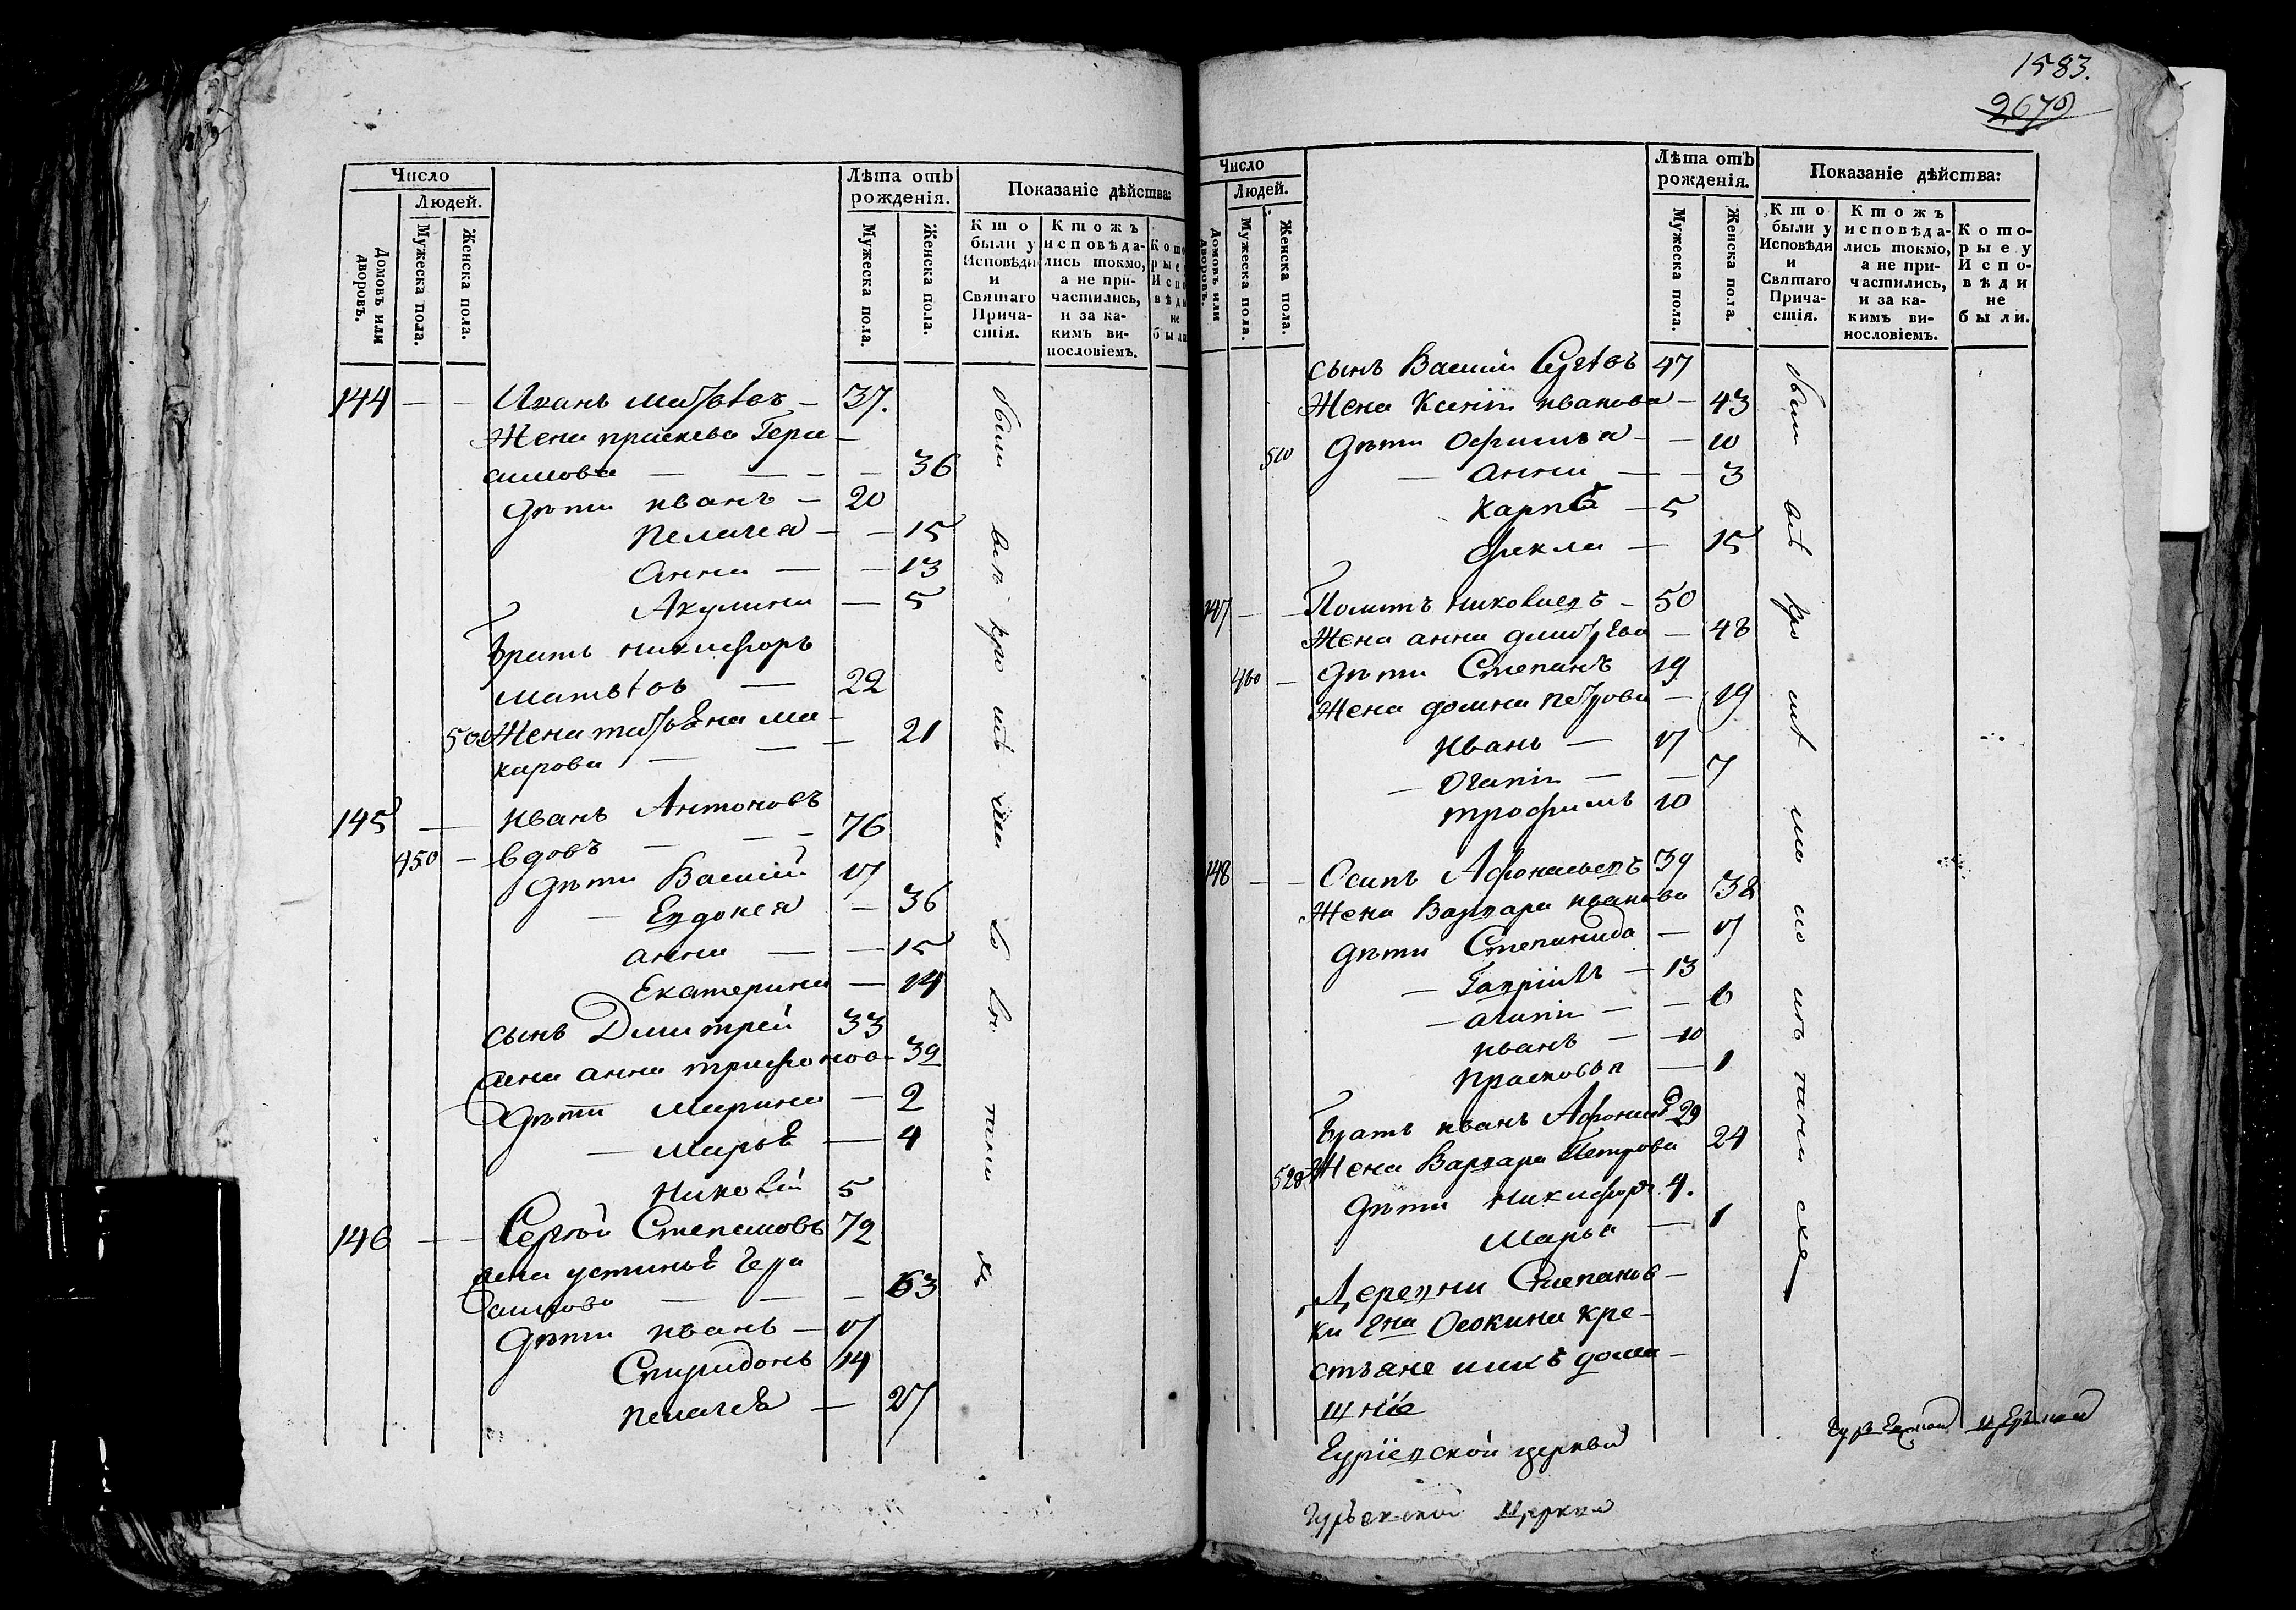 Число
Людей.
Домовъ или дворовъ.
Мужеска пола.
Женска пола.
Лѣта отъ рожденія.
Мужеска пола.
Женска пола.
Показаніе дѣйства:
Кто были у Исповѣди и Святаго Прича-стія.
Ктожъ исповѣда-лись токмо, а не при-частились, и за ка-кимъ ви-нословіемъ.
144 — — Иванъ Матвѣевъ — 37.
Жена праскева Гера —
симова — — — 36
дѣти иванъ — 20
пелагея — — 15
Анна — — 13
Акулина — 5
братъ никифоръ
матвѣевъ — 22
500 Жена татьяна ма —
карова — — — 21
145 — иванъ Антоновъ
450 — вдовъ — — 76
дѣти Василій 17
— Евдокея — 36
анна — — 15
Екатерина — 14
сынъ Дмитрей 33
жена анна трифонова 39
дѣти Марина — 2
— Марья — 4
николай 5
146 — — Сергѣй Степановъ 72
жена устинья Гера
симова — — — 63
дѣти иванъ — 17
Спиридонъ 14
пелагея — 27
были
1583.
2679
Число
Людей.
Домовъ или дворовъ.
Мужеска пола.
Женска пола.
Лѣта отъ рожденія.
Мужеска пола.
Женска пола.
Показаніе дѣйства:
Кто были у Исповѣди и Святаго Прича-стія.
Ктожъ исповѣда-лись токмо, а не при-частились, и за ка-кимъ ви-нословіемъ.
Кото-рые у Испо-вѣди не были.
сынъ Василій 47
Жена Ксенія иванова — 43
510 дѣти Офимья — — 10
— анна — — 3
карпъ — 5
фекла — 15
147 — — николаевъ — 50
Жена анна дмитрева — 48
460 — дѣти Степанъ 19
Жена домна петрова — 19
иванъ — 17
— Агапія — — 7
трофимъ 10
148 — — Осипъ Афонасьевъ 39
Жена Варвара иванова 38
дѣти Степанида — 17
— Гаврiилъ — 13
— агапія — — 6
иванъ — 10
прасковья — 1
братъ иванъ Афонасьевъ 29
520 Жена Варвара Петрова 24
дѣти никифоръ 4.
Марья — 1
были
Деревни Степанов —
ки Ена Осокина кре —
стьяне ихъ дома —
шніе
Гуріевской церкви
Гурьевской Церкви